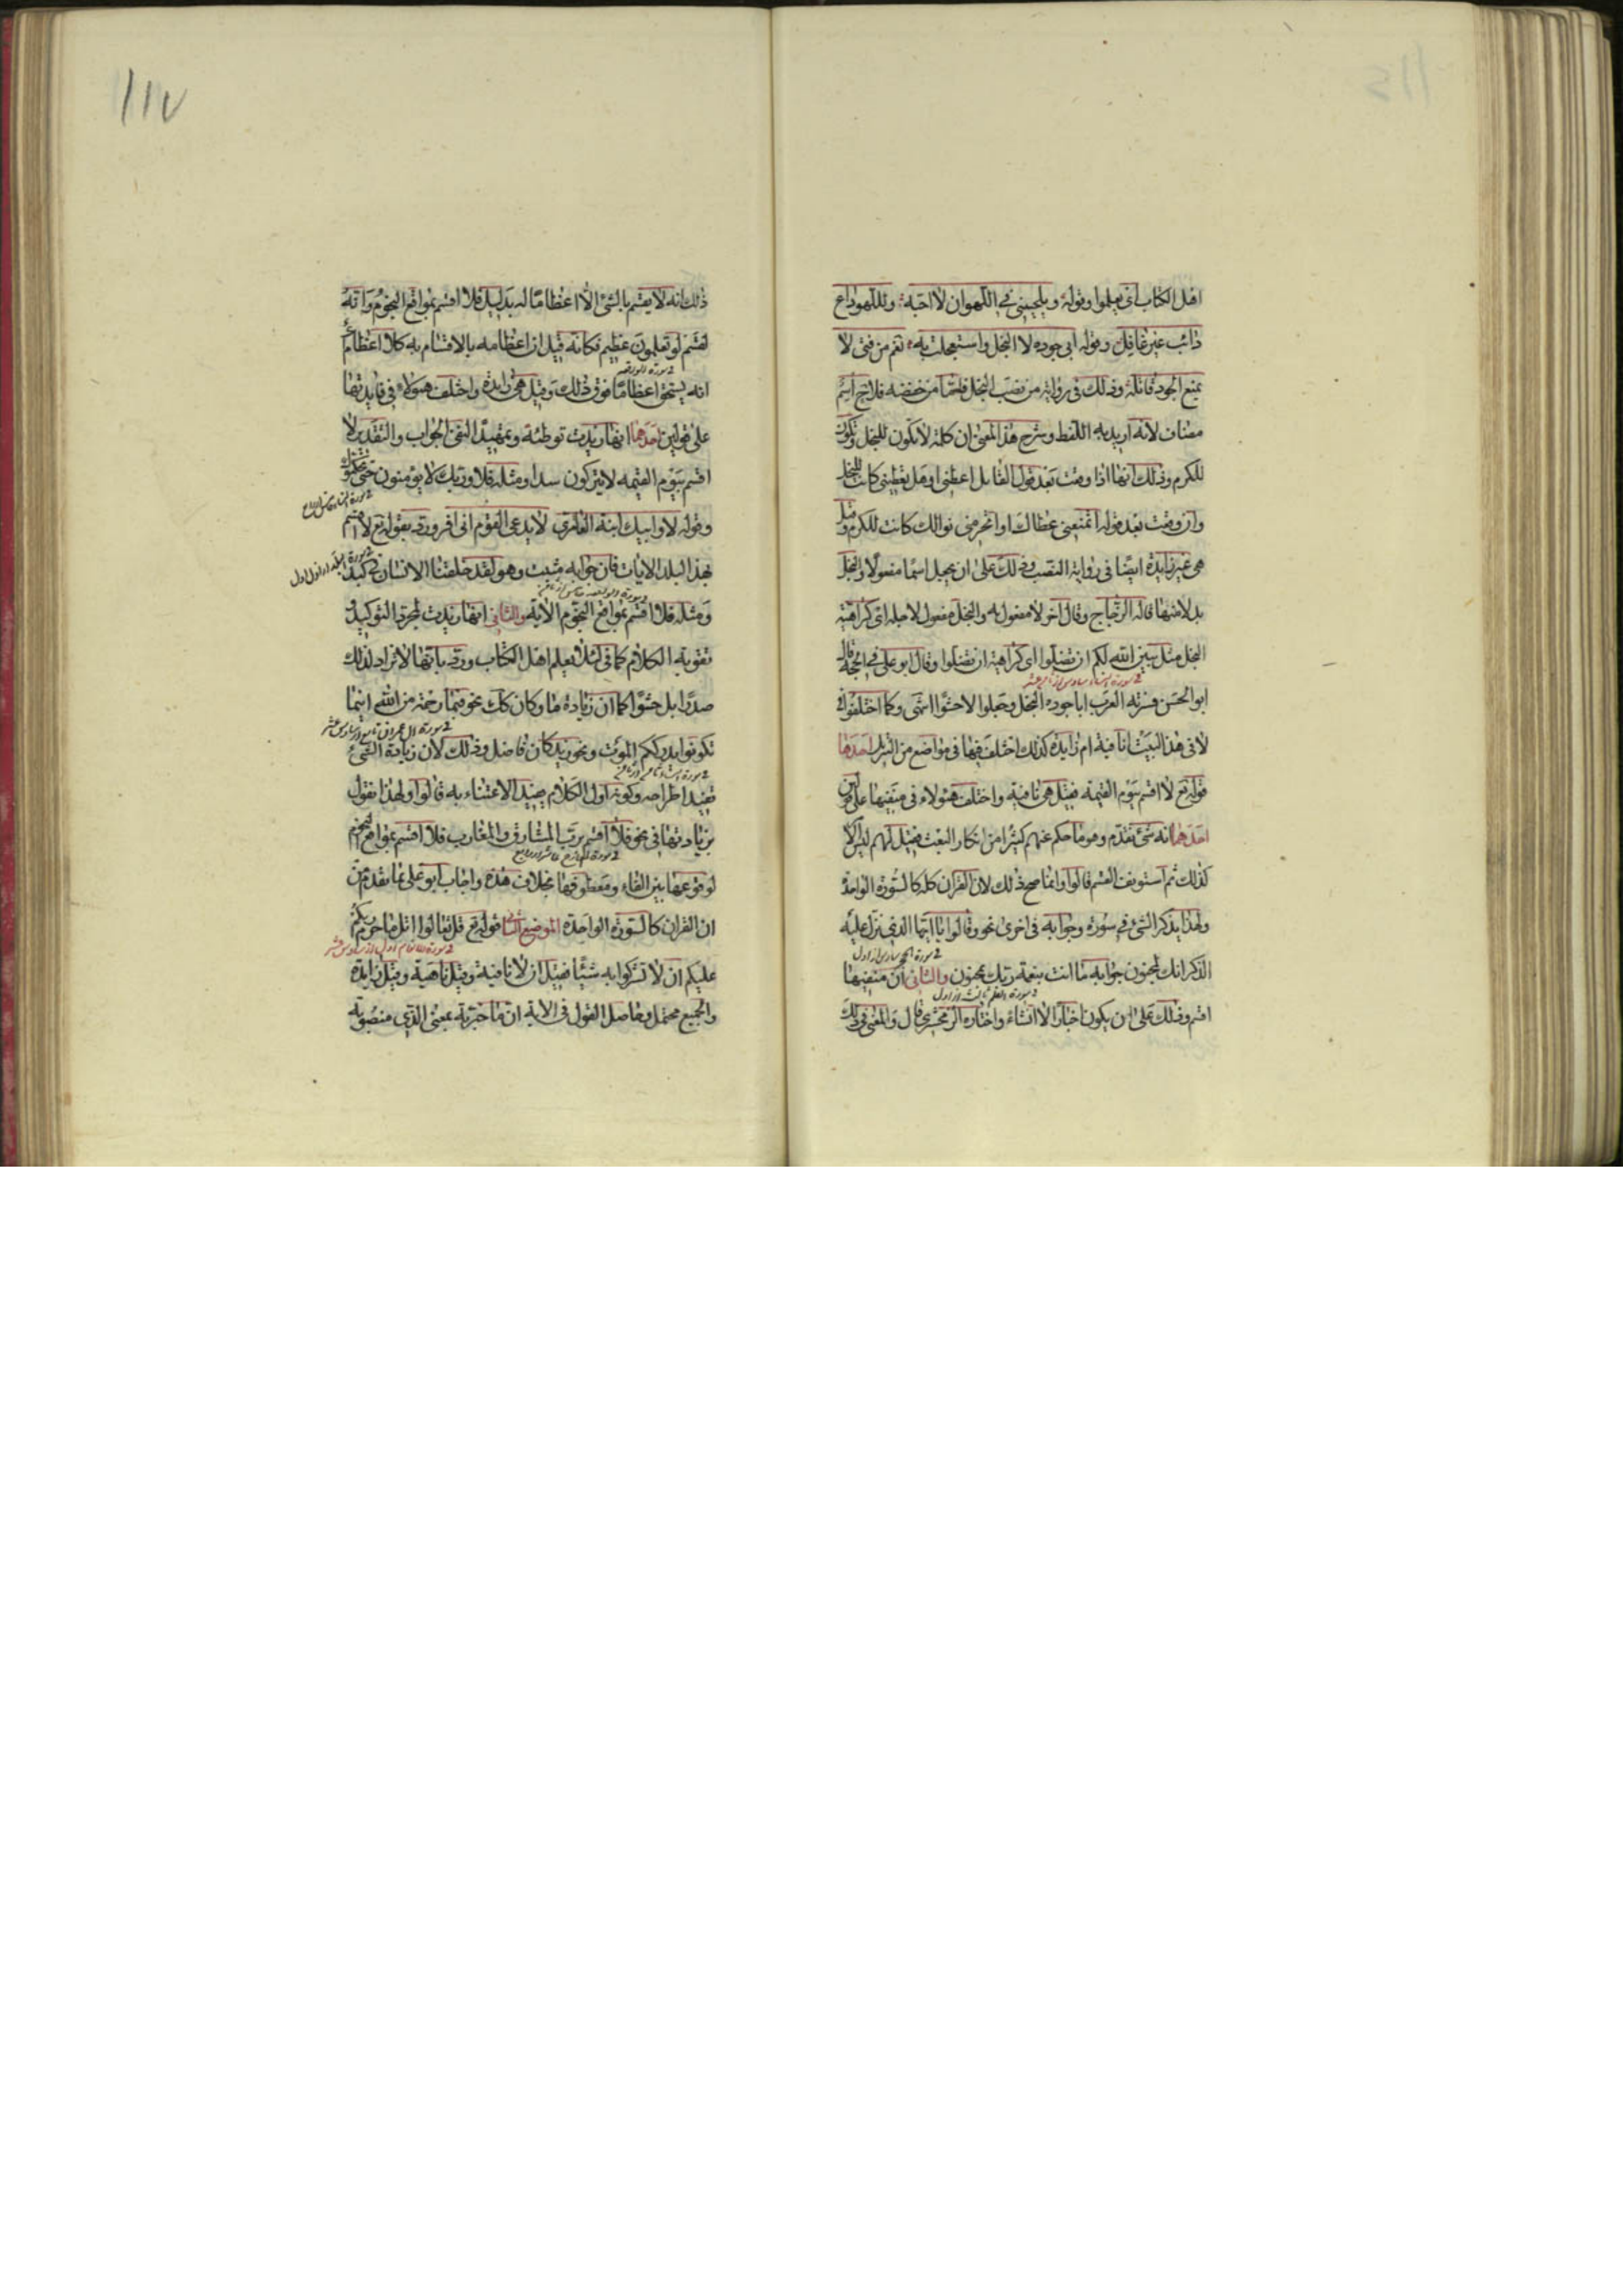 اهل الكتاب اى يعلموا وقوله ويلحيننى فى اللهو ان لا احبه وللهو داع
دائب غير غافل وقوله ابى جوده لا البخل واستعجلت به نعم من فتى لا
يمنع الجود قاتله وذلك فى رواية من نصب البخل فاما من خفضه فلا ح اسم
مضاف لانه اريد به اللفظ وشرح هذا المعنى ان كلمة لا تكون للبخل وتكون
للكرم وذلك انها اذا وقعت بعد قول القائل اعطنى او هل تعطينى كانت للبخل
وان وقعت بعد قوله اتمنعنى عطاك او اتحرمنى نوالك كانت للكرم وقيل
هى غير زايدة ايضا فى رواية النصب وذلك على ان يجعل اسما مفعولا والبخل
بدلا منها قاله الزجاج وقال اخر لا مفعول به والبخل مفعول لاجله اى كراهية
البخل مثل يبين الله لكم ان تضلوا اى كراهية ان تضلوا وقال ابو على فى الحجة قال
ابو الحسن فسرته العرب ابا جوده البخل وجعلوا لا حشوا انتهى وكما اختلفوا فى
لا فى هذا البيت انافية ام زايدة كذلك اختلف فيها فى مواضع من التنزيل احدها
قوله تع لا اقسم بيوم القيمة فقيل هى نافية واختلف هؤلاء فى منفيها على قولين
احدهما انه شئ تقدم وهو ما حكم عنهم كثيرا من انكار البعث فقيل لهم ليس الامر
كذلك ثم استونف القسم قالوا وانما صح ذلك لان القران كله كالسورة الواحدة
ولهذا يذكر الشئ فى سورة وجوابه فى اخرى نحو وقالوا يا ايها الذى نزل عليه
الذكر انك لمجنون جوابه ما انت بنعمة ربك بمجنون والثانى ان منفيها
اقسم وذلك على ان يكون اخبارا لا انشاء واختاره الزمخشرى قال والمعنى فى ذلك
ذلك انه لا يقسم بالشئ الا اعظاما له بدليل فلا اقسم بمواقع النجوم وانه
لقسم لو تعلمون عظيم فكانه قيل ان اعظامه بالاقسام به كلا اعظام اى
انه يستحق اعظاما فوق ذلك وقيل هى زايدة واختلف هؤلاء فى فايدتها
على قولين احدهما انها زيدت توطئة وتمهيدا لنفى الجواب والتقدير لا
اقسم بيوم القيمة لا يتركون سدا ومثله فلا وربك لا يؤمنون حتى يحكموك
وقوله لا وابيك ابنة العامرى لا يدعى القوم انى افر ورد بقوله تع لا اقسم
بهذا البلد الايات فان جوابه مثبت وهو لقد خلقنا الانسان فى كبد
ومثله فلا اقسم بمواقع النجوم الاية والثانى انها زيدت لمجرد التوكيد و
تقوية الكلام كما فى لئلا يعلم اهل الكتاب ورد بانها لا تزاد لذلك
صدرا بل حشوا كما ان زيادة ما وكان كك نحو فبما رحمة من الله اينما
تكونوا يدرككم الموت ونحو زيد كان فاضل وذلك لان زيادة الشئ
تفيد اطراحه وكونه اول الكلام يفيد الاعتناء به قالوا ولهذا نقول
بزيادتها فى نحو فلا اقسم برب المشارق والمغارب فلا اقسم بمواقع النجوم
لوقوعها بين الفاء ومعطوفها بخلاف هذه واجاب ابو على بما تقدم من
ان القران كالسورة الواحدة الموضع الثانى قوله تع قل تعالوا اتل ما حرم ربكم
عليكم ان لا تشركوا به شيئا فقيل ان لا نافية وقيل ناهية وقيل زايدة
والجميع محتمل وحاصل القول فى الاية ان ما خبرية بمعنى الذى منصوبة
١١٧